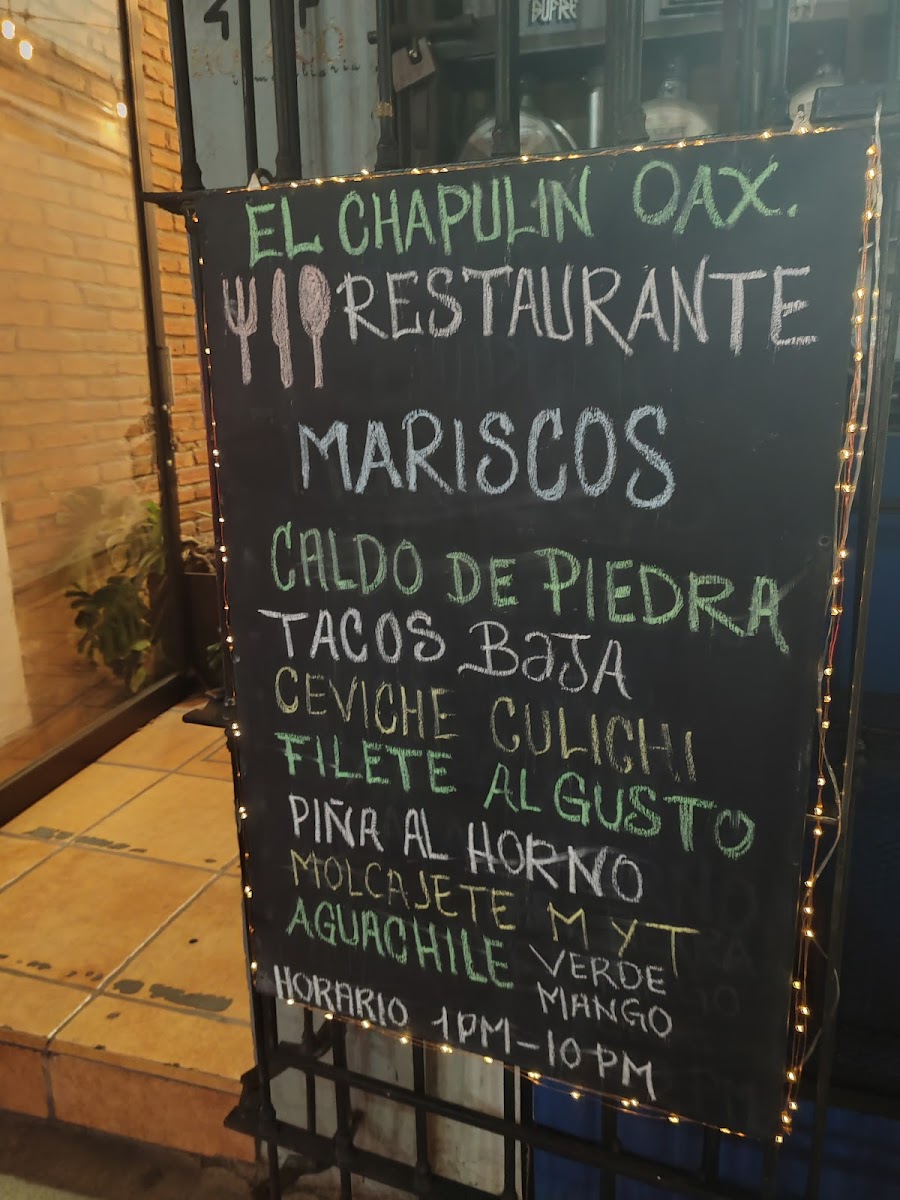 BUFRE
EL CHAPULIN OAX.
RESTAURANTE
MARISCOS
CALDO DE PIEDRA
TACOS BAJA
CEVICHE CULICHI
FILETE AL GUSTO
PIÑA AL HORNO
MOLCAJETE M Y T
AGUACHILE VERDE
MANGO
HORARIO 1PM-10PM